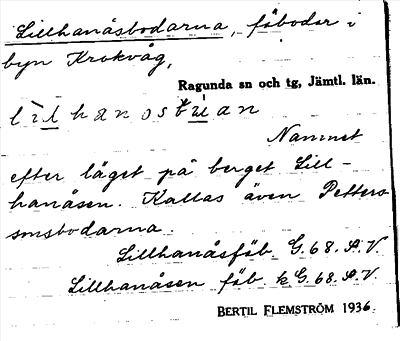 Lillhanåsbodarna, fäbodar i
byn Krokvåg,
Ragunda sn och tg, Jämtl. län.
Namnet
efter läget på berget Lill-
hanåsen. Kallas även Petters-
sonsbodarna.
Lillhanåsfäb. G. 68. S.V.
Lillhanåsen fäb. k G. 68. S.V.
BERTIL FLEMSTRÖM 1936.